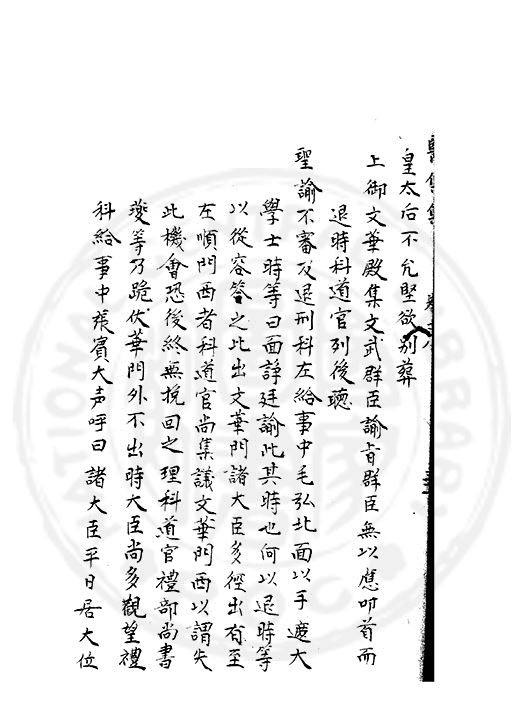 皇太后不允堅欲別葬
上御文華殿集文武群臣諭旨群臣無以應叩首而
退時科道官列後聽
聖諭不審及退刑科左給事中毛弘北面以手遮大
學士時等曰面諍廷諭此其時也何以退時等
以從容答之比出文華門諸大臣多徑出有至
左順門西者科道官尚集議文華門西以謂失
此機會恐後終無挽回之理科道官禮部尚書
夔等乃跪伏華門外不出時大臣尚多觀望禮
科給事中張賓大声呼曰諸大臣平日居大位